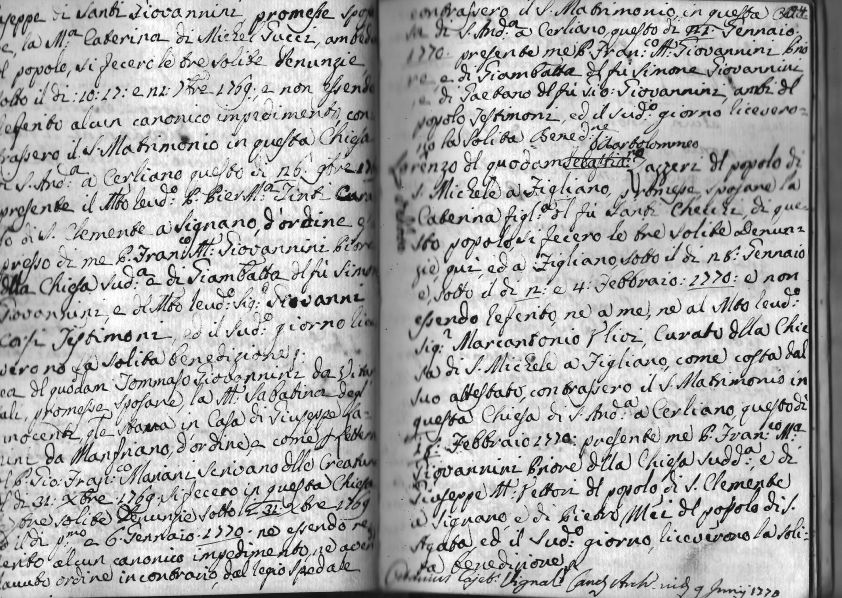 seppe di Santi Giovannini promesse spo
e, la M.ª Caterina di Michel Tucci, ambedu
l popolo, si fecer le tre solite denunzie
sotto il di: 10: 17: e 21: 7bre 1769: e non essendo
referito alcun canonico impedimento, con
trassero il S. Matrimonio in questa Chiesa
di S. And.ª a Cerliano questo di 26: 9bre 17
presente il Mto Revd.º P. Pier M.ª Tinti Cura
to di S. Clemente a Signano, d'ordine e
presso di me P. Fran.co M.ª Giovannini Priore
dlla Chiesa sud.ª e di Giambatta dl fù Simone
Giovannini, e di Mto Revd.º Sig.e Giovanni
Casi Testimoni, ed il sud.º giorno rice
verono la solita benedizione:
ea dl quodam Tommaso Giovannini da
ali, promesse sposare la M.ª Sabatina degl'
nnocenti, gle stava in Casa di Giuseppe
nini da Manfriano, d'ordine, e come p lettera
l P. Sig: Franc.co Mariani scrivano dllo Creature
s di 31: Xbre 1769: si fecero in questa Chiesa
tre solite denunzie sotto il 31 Xbre 1769
e il di p.mo e 6: Gennaio: 1770: ne essendo re
rito alcun canonico impedimento, ne aven
avuto ordine in contrario, dal regio spedale
contrassero il S. Matrimonio, in questa Chie
sa di S. And.ª a Cerliano, questo di 21: Gennaio:
1770: presente me P. Fran.co M.ª Giovannini Prio
re e di Giambatta dl fù Simone Giovannini
, e di Gaetano dl fù Gio: Giovannini, ambi dl
popolo Testimoni, ed il sud.º giorno ricevero
no la solita Bened.ne
Bartolommeo
Lorenzo dl quodam Sebastiano Vaggeri dl popolo di
S. Michele a Figliano, promesse sposare la
Caterina figl.ª dl fù Santi Chelizi, di que
sto popolo, si fecero le tre solite denun
zie qui ed a Figliano sotto il di 28: Gennaio
e, sotto il di 2: e 4: Febbraio: 1770: e non
essendo referito, ne a me, ne al Mto Revd.º
Sig: Marcantonio Ulivi, Curato dlla Chie
sa di S. Michele a Figliano, come costa dal
suo attestato, contrassero il S. Matrimonio in
questa Chiesa di S. And.ª a Cerliano, questo di
Febbraio 1770: presente me P. Fran.co M.ª
Giovannini Priore dlla Chiesa sudd.ª e di
Giuseppe M.ª Vettori dl popolo di S. Clemente
a Signano e di Pietro Mei dl popolo di S.
Agata ed il sud.º giorno, riceverono la soli
ta benedizione
Vignali Canc. Arch. 9 Junij 1770